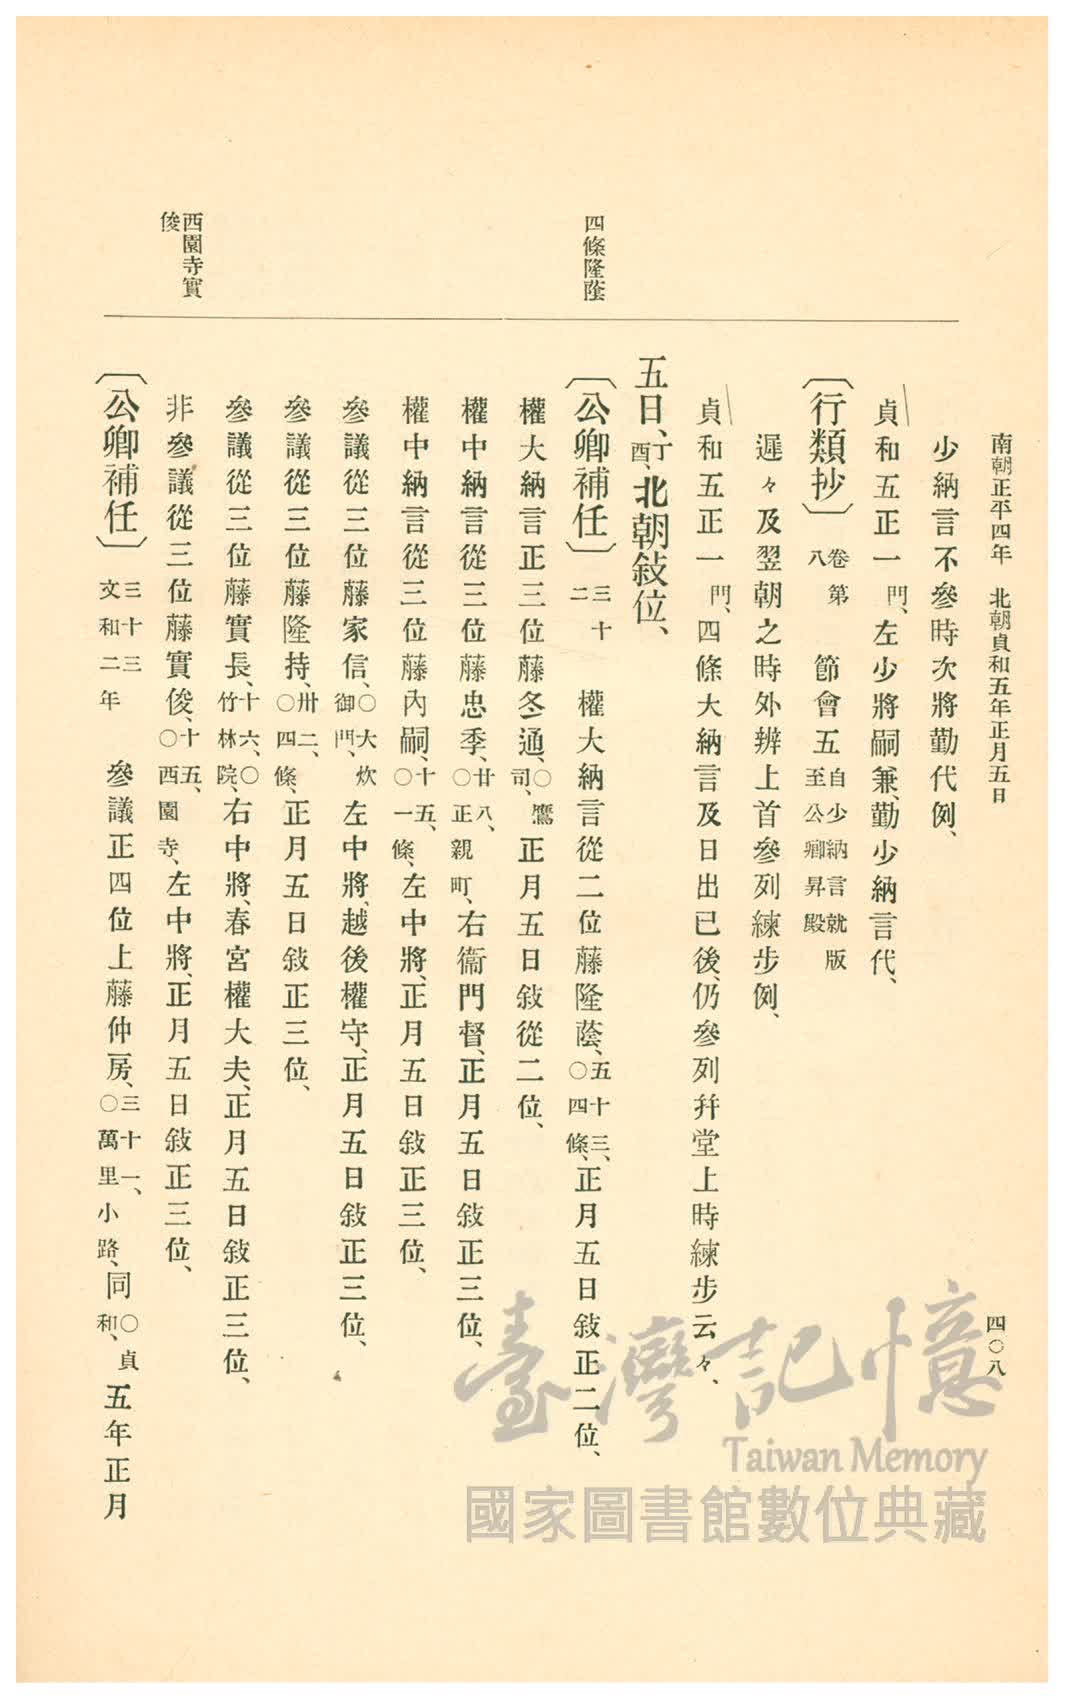 南朝正平四年　北朝貞和五年正月五日
四〇八
少納言不參時次將勤代例、
貞和五正一門、左少將嗣兼、勤少納言代、
〔行類抄〕卷第八　節會五自少納言就版至公卿昇殿
遲々及翌朝之時外辨上首參列練步例、
貞和五正一門、四條大納言及日出已後、仍參列幷堂上時練步云々、
五日、丁酉、北朝敍位、
四條隆蔭
〔公卿補任〕三十二　權大納言從二位藤隆蔭、五十三、〇四條、正月五日敍正二位、
權大納言正三位藤冬通、〇鷹司、正月五日敍從二位、
權中納言從三位藤忠季、廿八、〇正親町、右衞門督、正月五日敍正三位、
權中納言從三位藤內嗣、十五、〇一條、左中將、正月五日敍正三位、
參議從三位藤家信、〇大炊御門、左中將、越後權守、正月五日敍正三位、
參議從三位藤隆持、卅二、〇四條、正月五日敍正三位、
參議從三位藤實長、十六、〇竹林院、右中將、春宮權大夫、正月五日敍正三位、
西園寺實俊
非參議從三位藤實俊、十五、〇西園寺、左中將、正月五日敍正三位、
〔公卿補任〕三十三文和二年　參議正四位上藤仲房、三十一、〇萬里小路、同〇貞和、五年正月
臺灣記憶
Taiwan Memory
國家圖書館數位典藏